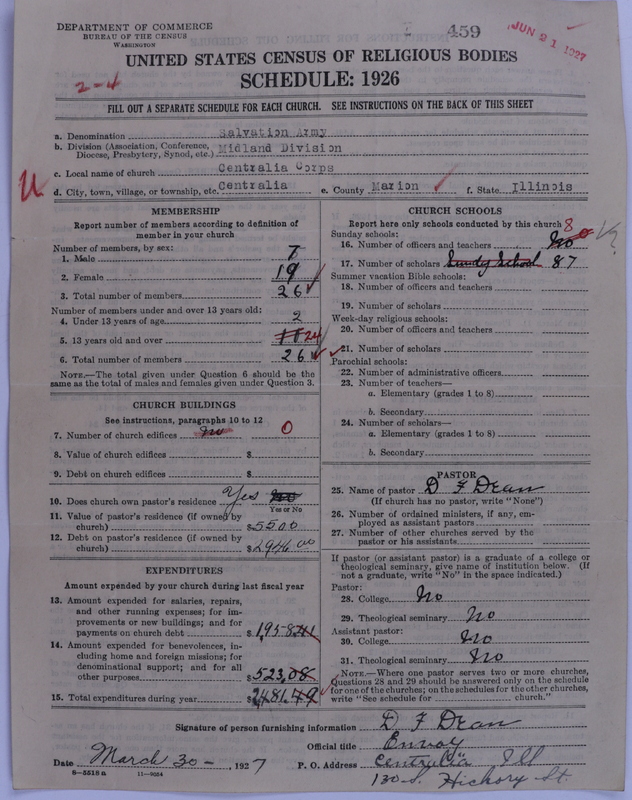 DEPARTMENT OF COMMERCE
BUREAU OF THE CENSUS
WASHINGTON
459
JUN 21 1927
UNITED STATES CENSUS OF RELIGIOUS BODIES
SCHEDULE: 1926
2-4
FILL OUT A SEPARATE SCHEDULE FOR EACH CHURCH. SEE INSTRUCTIONS ON THE BACK OF THIS SHEET
a. Denomination Salvation Army
b. Division (Association, Conference, Diocese, Presbytery, Synod, etc.) Midland Division
c. Local name of church Centralia Corps
d. City, town, village, or township, etc. Centralia e. County Marion f. State Illinois
MEMBERSHIP
Report number of members according to definition of
member in your church
Number of members, by sex:
1. Male 7
2. Female 19
3. Total number of members 26
Number of members under and over 13 years old:
4. Under 13 years of age 2
5. 13 years old and over 24
6. Total number of members 26
NOTE.—The total given under Question 6 should be
same as the total of males and females given under Question 3.
CHURCH BUILDINGS
See instructions, paragraphs 10 to 12
7. Number of church edifices No 0
8. Value of church edifices $
9. Debt on church edifices $
10. Does church own pastor's residence Yes No
Yes or No
11. Value of pastor's residence (if owned by
church) $5500
12. Debt on pastor's residence (if owned by
church) $2946 00
EXPENDITURES
Amount expended by your church during last fiscal year
13. Amount expended for salaries, repairs,
and other running expenses; for im-
provements or new buildings; and for
payments on church debt $1,958.41
14. Amount expended for benevolences,
including home and foreign missions; for
denominational support; and for all
other purposes $523.08
15. Total expenditures during year $2481.49
CHURCH SCHOOLS
Report here only schools conducted by this church
Sunday schools:
16. Number of officers and teachers No 8
17. Number of scholars Sundy School 87
Summer vacation Bible schools:
18. Number of officers and teachers
19. Number of scholars
Week-day religious schools:
20. Number of officers and teachers
21. Number of scholars
Parochial schools:
22. Number of administrative officers
23. Number of teachers—
a. Elementary (grades 1 to 8)
b. Secondary
24. Number of scholars—
a. Elementary (grades 1 to 8)
b. Secondary
PASTOR
25. Name of pastor D F Dean
(If church has no pastor, write "None")
26. Number of ordained ministers, if any, em-
ployed as assistant pastors
27. Number of other churches served by the
pastor or his assistants
If pastor (or assistant pastor) is a graduate of a college or
theological seminary, give name of institution below. (If
not a graduate, write "No" in the space indicated.)
Pastor:
28. College No
29. Theological seminary No
Assistant pastor:
30. College No
31. Theological seminary No
NOTE.—Where one pastor serves two or more churches,
Questions 28 and 29 should be answered only on the schedule
for one of the churches; on the schedules for the other churches,
write "See schedule for church."
Signature of person furnishing information D F Dean
Official title Envoy
Date March 30 - , 1927 P. O. Address Centralia Ill
8-5518 a 11-9054 130 S. Hickory St.